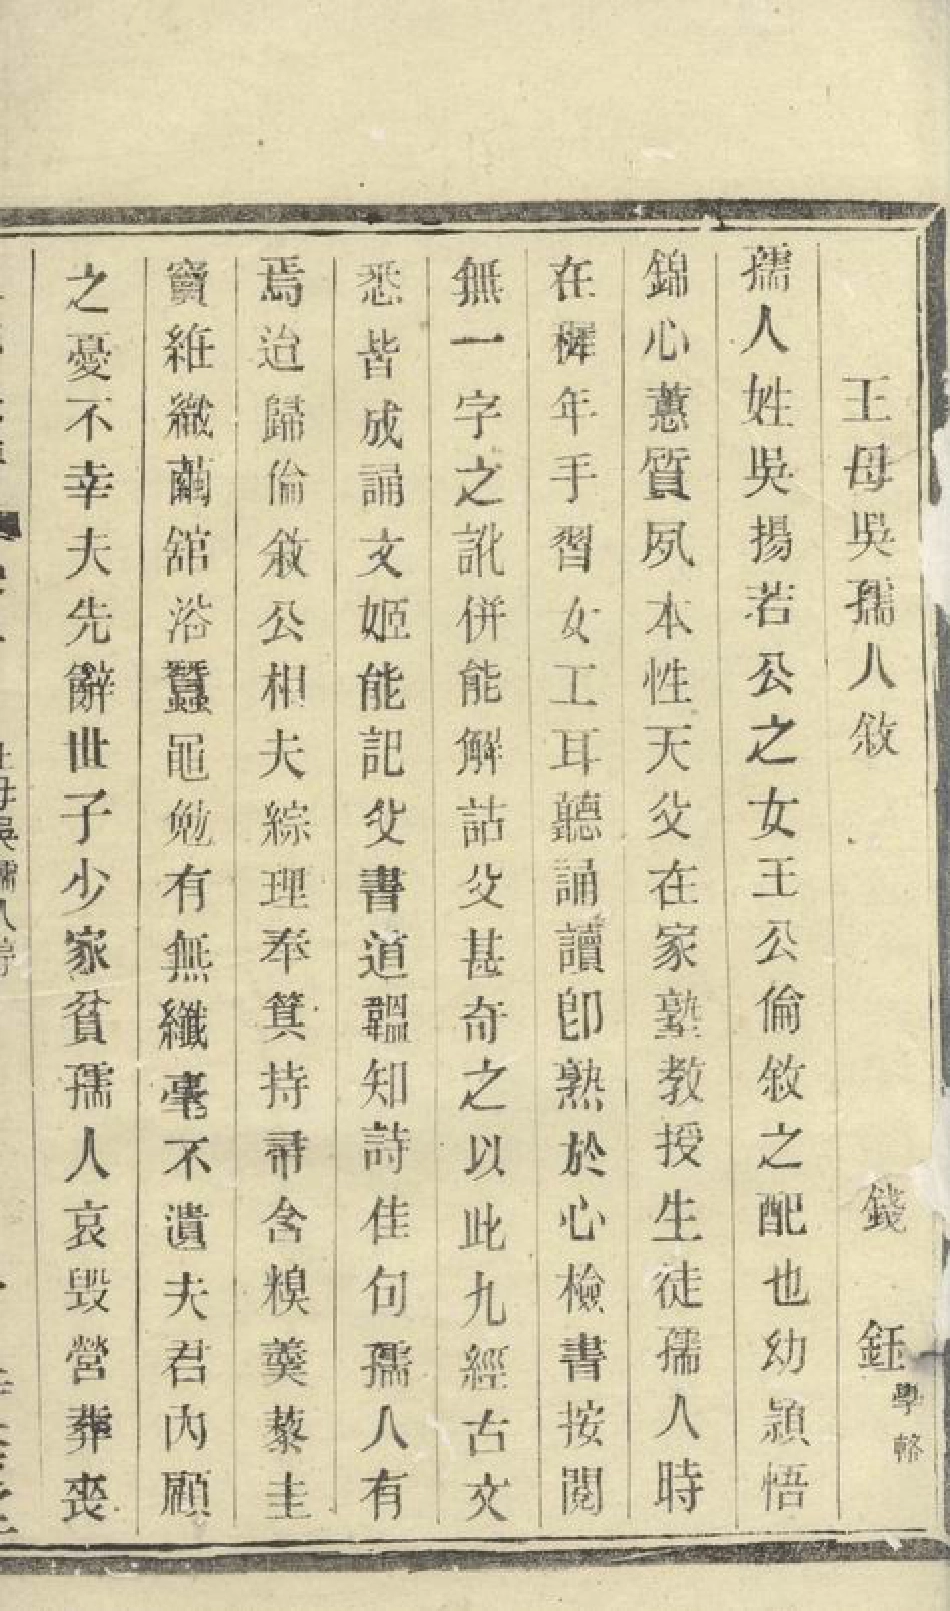 王母吳孺人敘
錢鈺學幹
孺人姓吳揚若公之女王公倫敘之配也幼穎悟
錦心蕙質夙本性天父在家塾教授生徒孺人時
在穉年手習女工耳聽誦讀卽熟於心檢書按閱
無一字之訛併能解詁父甚奇之以此九經古文
悉皆成誦文姬能記父書道韞知詩佳句孺人有
焉迨歸倫敘公相夫綜理奉箕持帚含糗羹藜圭
竇維織繭舘浴蠶黽勉有無纖毫不遺夫君內顧
之憂不幸夫先辭世子少家貧孺人哀毀營葬喪
王母吳孺人